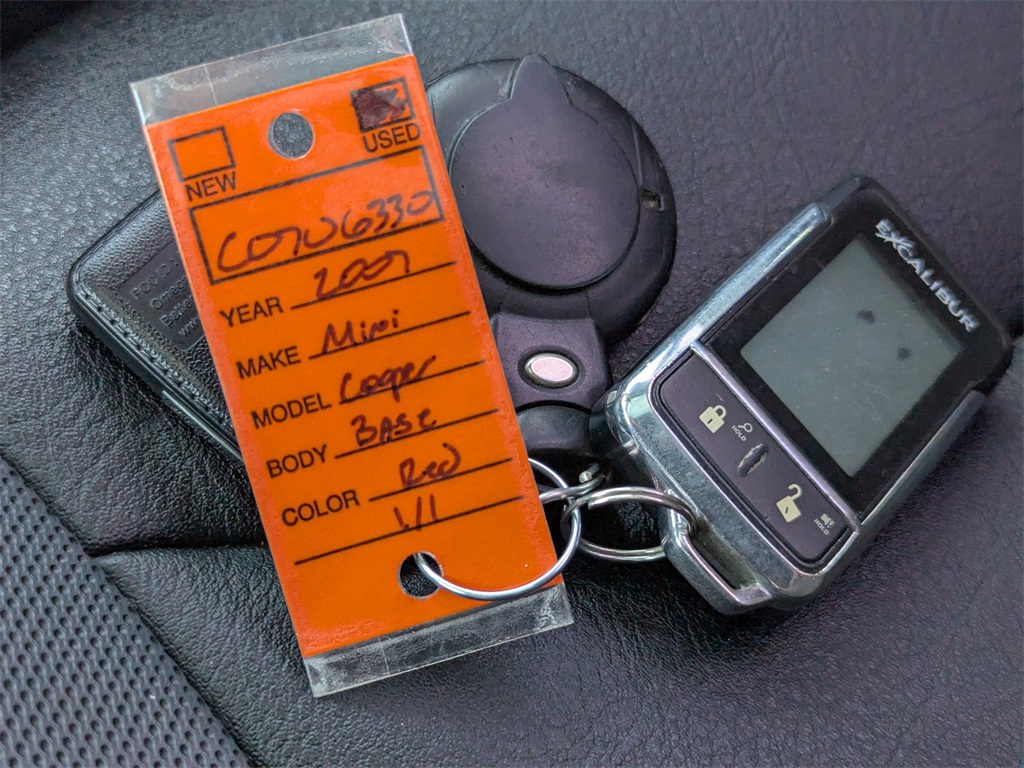 NEW
USED
C0706330
YEAR 2007
MAKE Mini
MODEL Cooper
BODY BASE
COLOR Red
1/1
EXCALIBUR
HOLD
HOLD
FCC ID